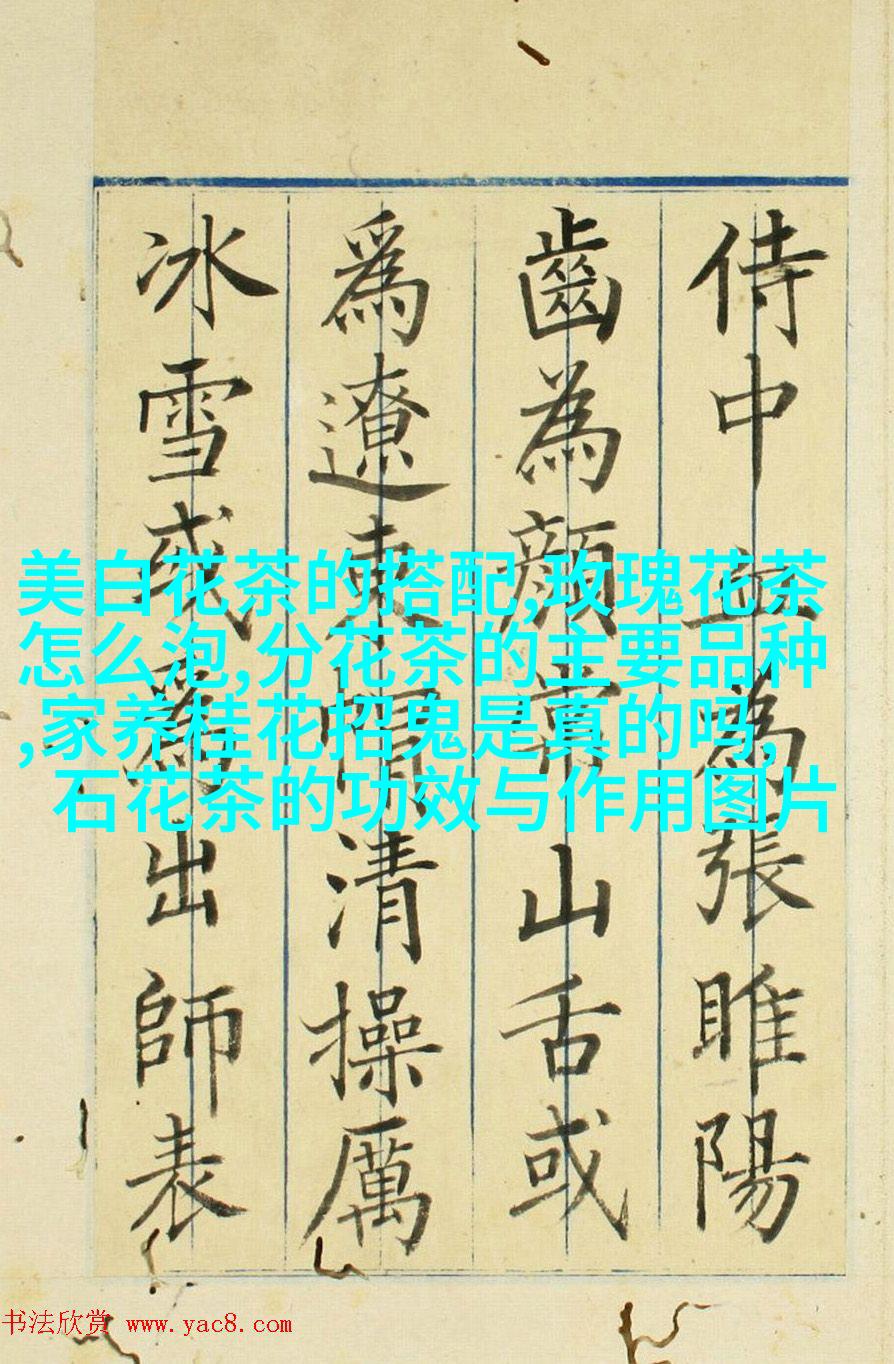 侍中血為張睢陽
齒為顏常山舌或
爲遼東帽清操厲
冰雪或爲出師表
美白花茶的搭配,玫瑰花茶
怎么泡,分花茶的主要品种
,家养桂花招鬼是真的吗,
石花茶的功效与作用图片
书法欣赏 www.yac8.com